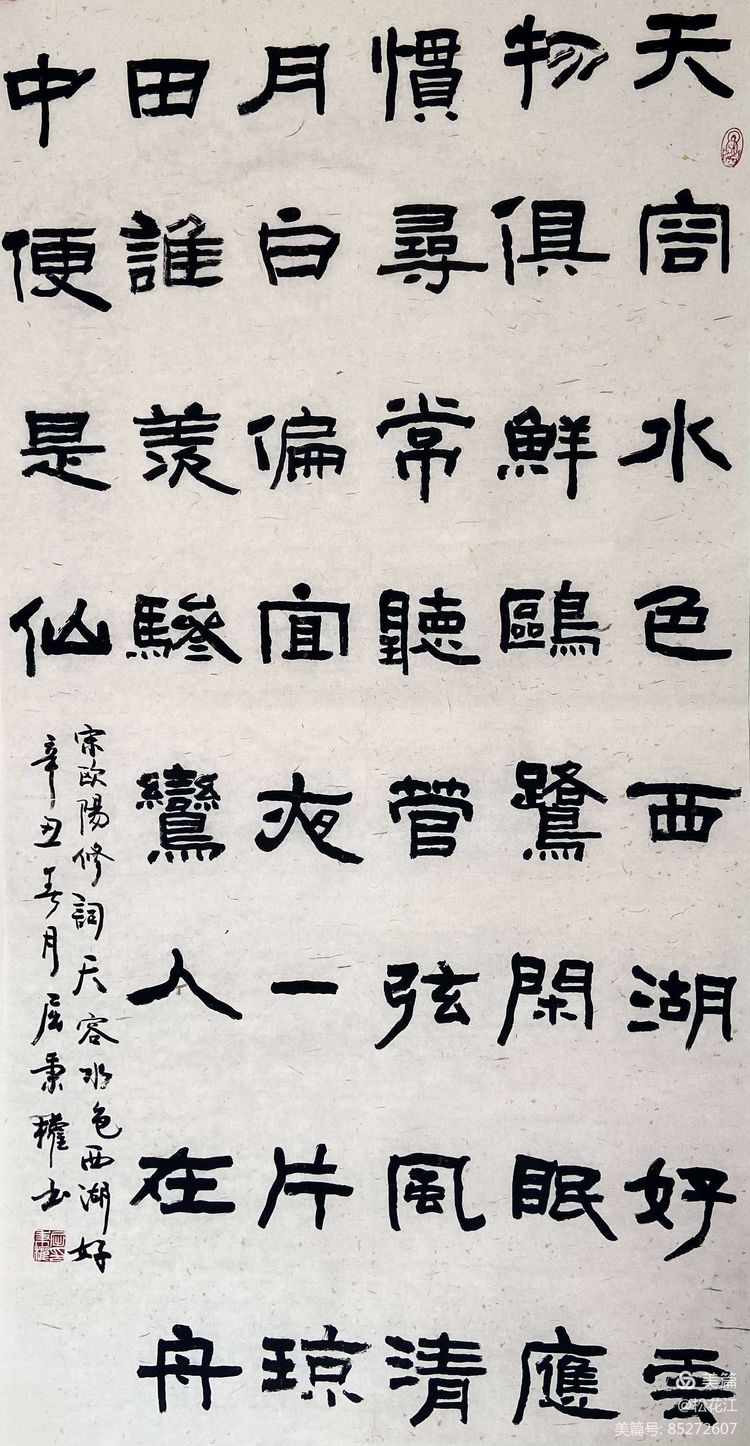 天容水色西湖好雲
物俱鮮鷗鷺閑眠應
慣尋常聽管弦風清
月白偏宜夜一片琼
田誰羨驂鸞人在舟
中便是仙
宋欧陽修詞天容水色西湖好
辛丑春月屈秉權书
美篇
@松花江
美篇号: 85272607